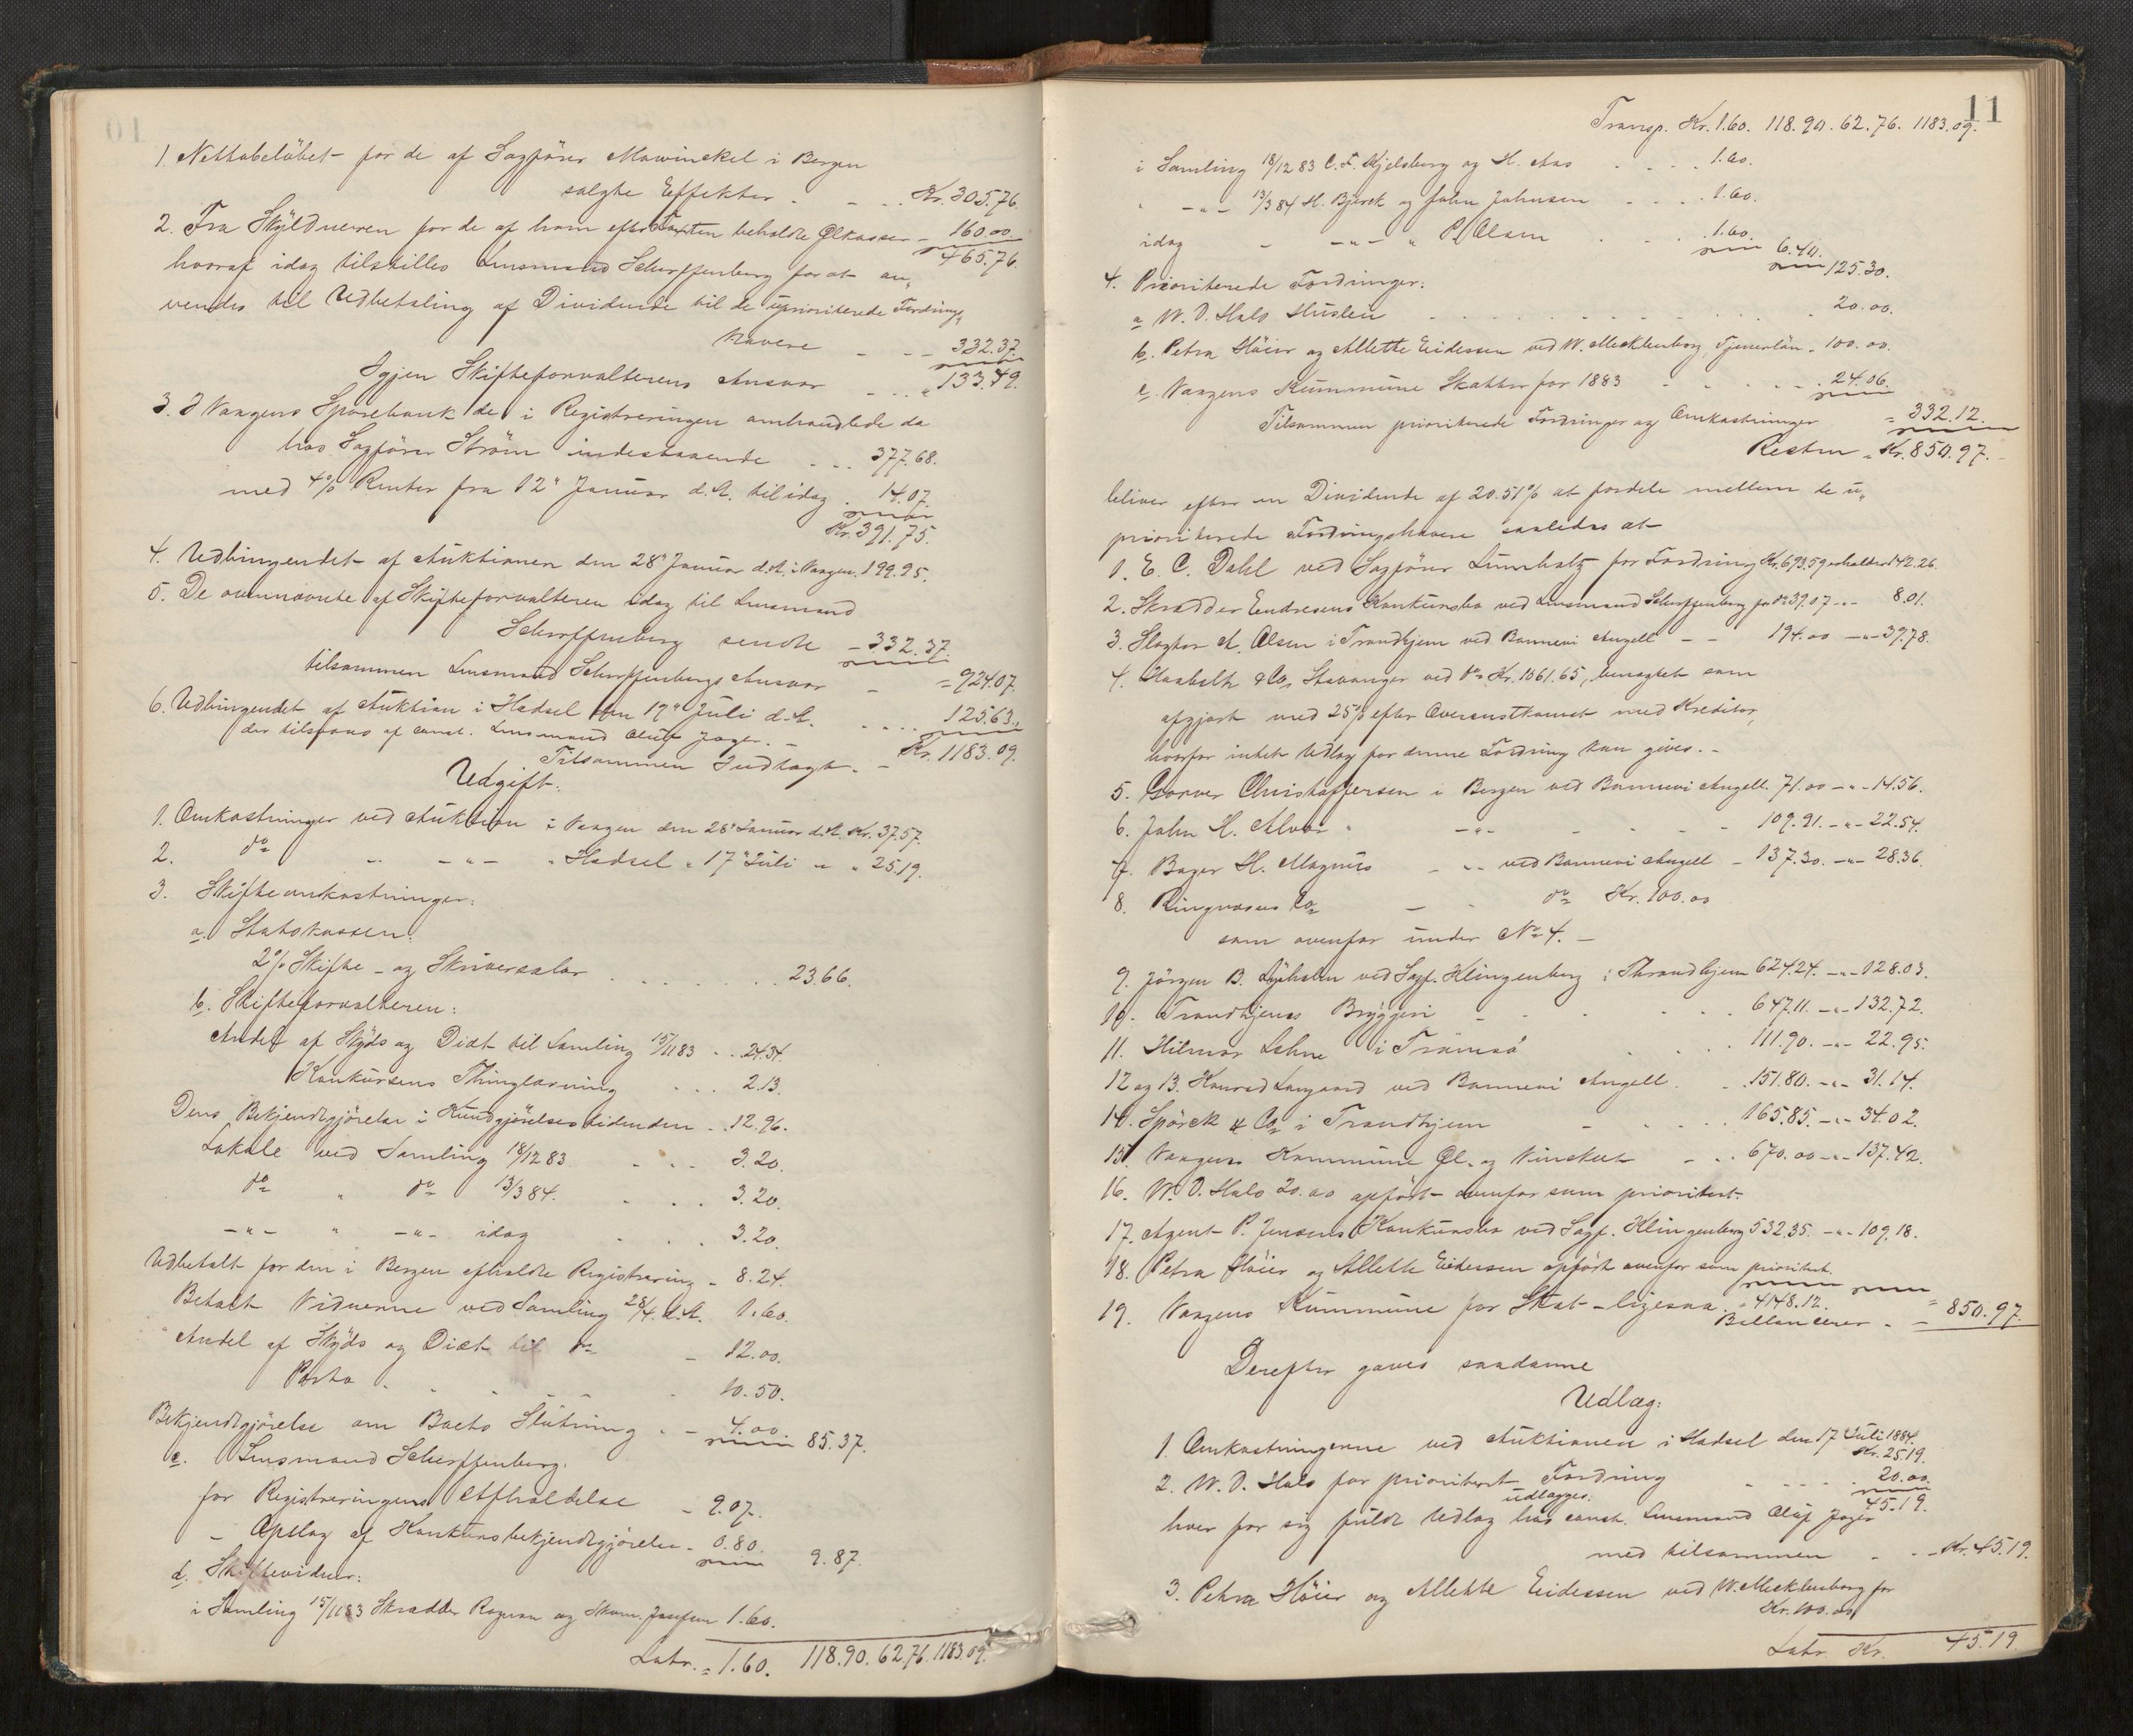 1. Nettobelöbet for de af Sagförer Mowinckel i Bergen
solgte Effekter . - . . Kr. 305.76.
2. Fra Skyldneren for de af ham efter Taxten beholdte Ølkasser - 160.00.
465.76.
hvoraf idag tilstilles Lensmand Scherffenberg for at an„
vendes til Udbetaling af Dividende til de uprioriterede Fordrings„
havere - - - 332.37.
Igjen Skifteforvalterens Ansvar - . . " 133.49.
3. I Vaagens Sparebank de i Registreringen omhandlede da
hos Sagförer Ström indestaaende . . . 377.68.
med 4% Renter fra 12te Januar d.A. til idag . 14.07.
Kr. 391.75.
4. Udbringendet af Auktionen den 28de Januar d.A. i Vaagen. 199.95.
5. De ovennævnte af Skifteforvalteren idag til Lensmand
Scherffenberg sendte - 332.37.
tilsammen Lensmand Scherffenbergs Ansvar - = 924.07.
6. Udbringendet af Auktion i Hadsel den 17de Juli d.A. . . . . 125.63.
der tilsvares af const. Lensmand Oluf Jager. -
Tilsammen Indtægt . - Kr. 1183.09.
Udgift.
1. Omkostninger ved Auktion i Vaagen den 28de Januar d.A. Kr. 37.57.
2. do " - " - " Hadsel " 17de Juli " " 25.19.
3. Skifteomkostninger:
a. Statskassen:
2% Skifte - og Skriversalær . . . . . . 23.66.
b. Skifteforvalteren:
Andel af Skyds og Diæt til Samling 15/11 83 . . 24.34.
Konkursens Thinglæsning . . . 2.13.
Dens Bekjendtgjörelse i Kundgjörelsestidenden . . 12.96.
Lokale ved Samling 18/12 83 . . . 3.20.
do " do 13/3 84. . . . 3.20.
- " - " - " - idag . . . 3.20.
Udbetalt for den i Bergen afholdte Registrering - 8.24.
Betalt Vidnerne ved Samling 28/4 d.A. 1.60.
Andel af Skyds og Diæt til do - 12.00.
Porto . - - - - . 10.50.
Bekjendtgjörelse om Boets Slutning . - 4.00. 85.37.
c. Lensmand Scherffenberg.
for Registreringens Afholdelse - 9.07.
- Opslag af Konkursbekjendtgjörelse - 0.80. 9.87.
d. Skiftevidner:
i Samling 15/11 83 Skrædder Rognan og Skom. Josefsen 1.60.
Latr. = 1.60. 118.90. 62.76. 1183.09.
11
Transp. Kr. 1.60. 118.90. 62.76. 1183.09.
i Samling 18/12 83 C. F. Kjelsberg og H. Aas . . . . 1.60.
" - " - 13/3 84 H. Bjerck og John Johnsen . . . . 1.60.
idag - - " - " P. Olsen . . . 1.60. 6.40.
125.30.
4. Prioriterede Fordringer:
a W. D. Hals Husleie . . . . . . . . . 20.00.
b. Petra Höier og Allette Eidessen ved W. Mecklenborg, Tjenerlön - 100.00.
c. Vaagens Kummune Skatter for 1883 . . . . . 24.06.
Tilsammen prioriterede Fordringer og Omkostninger = 332.12.
Resten = Kr. 850.97.
bliver efter en Dividende af 20.51% at fordele mellem de u„
prioriterede Fordringshavere saaledes at
1. E. C. Dahl ved Sagförer Lumholtz for Fordring Kr. 693.59 erholder 142.26.
2. Skrædder Endresens Konkursbo ved Lensmand Scherffenberg for do 39.07 - " - 8.01.
3. Slagter A. Olsen i Trondhjem ved Bonnevi Angell - - 194.00 - " - 39.78.
4. Haabeth & Co, Stavanger ved do Kr. 1061.65, benægtet som
afgjort med 25% efter Overenskomst med Kreditor,
hvorfor intet Udlæg for denne Fordring kan gives. -
5. Garver Christoffersen i Bergen ved Bonnevi Angell. 71.00 - " - 14.56.
6. John H. Alver " - " - - - - 109.91. - " - 22.54.
7. Bager H. Magnus - " - ved Bonnevi Angell - 137.30. - " - 28.36.
8. Ringnæses Co - - do Kr. 100.00
som ovenfor under No 4. -
9. Jörgen B. Lysholm ved Sagf. Klingenberg i Throndhjem 624.24. - " - 128.03.
10. Trondhjems Bryggeri - . . . . . 647.11. - " - 132.72.
11. Hilmar Lehne i Tromsö . . . 111.90. - " - 22.95.
12 og 13. Konrad Langaard ved Bonnevi Angell . . . 151.80. - " - 31.14.
14. Spörck & Co i Trondhjem - . . . 165.85. - " - 34.02.
15. Vaagens Kommune Øl- og Vinskat - . . 670.00 - " - 137.42.
16. W. D. Hals 20.00 opfört ovenfor som prioritert.
17. Agent P. Jensens Konkursbo ved Sagf. Klingenberg 532.35. - " - 109.18.
18. Petra Höier og Allette Eidessen opfört ovenfor som prioritert.
19. Vaagens Kummune for Skat - ligesaa. " 4148.12.
Ballancerer . = 850.97.
Derefter gaves saadanne
Udlæg:
1. Omkostningerne ved Auktionen i Hadsel den 17 Juli 1884.
Kr. 25.19.
2. W. D. Hals for prioritert Fordring . . . . 20.00.
udlægges: 45.19.
hver for sig fuldt Udlæg hos const. Lensmand Oluf Jager
med tilsammen . . - Kr. 45.19.
3. Petra Höier og Allette Eidessen ved W. Mecklenborg for
Kr. 100.00
Latr. Kr. 45.19.